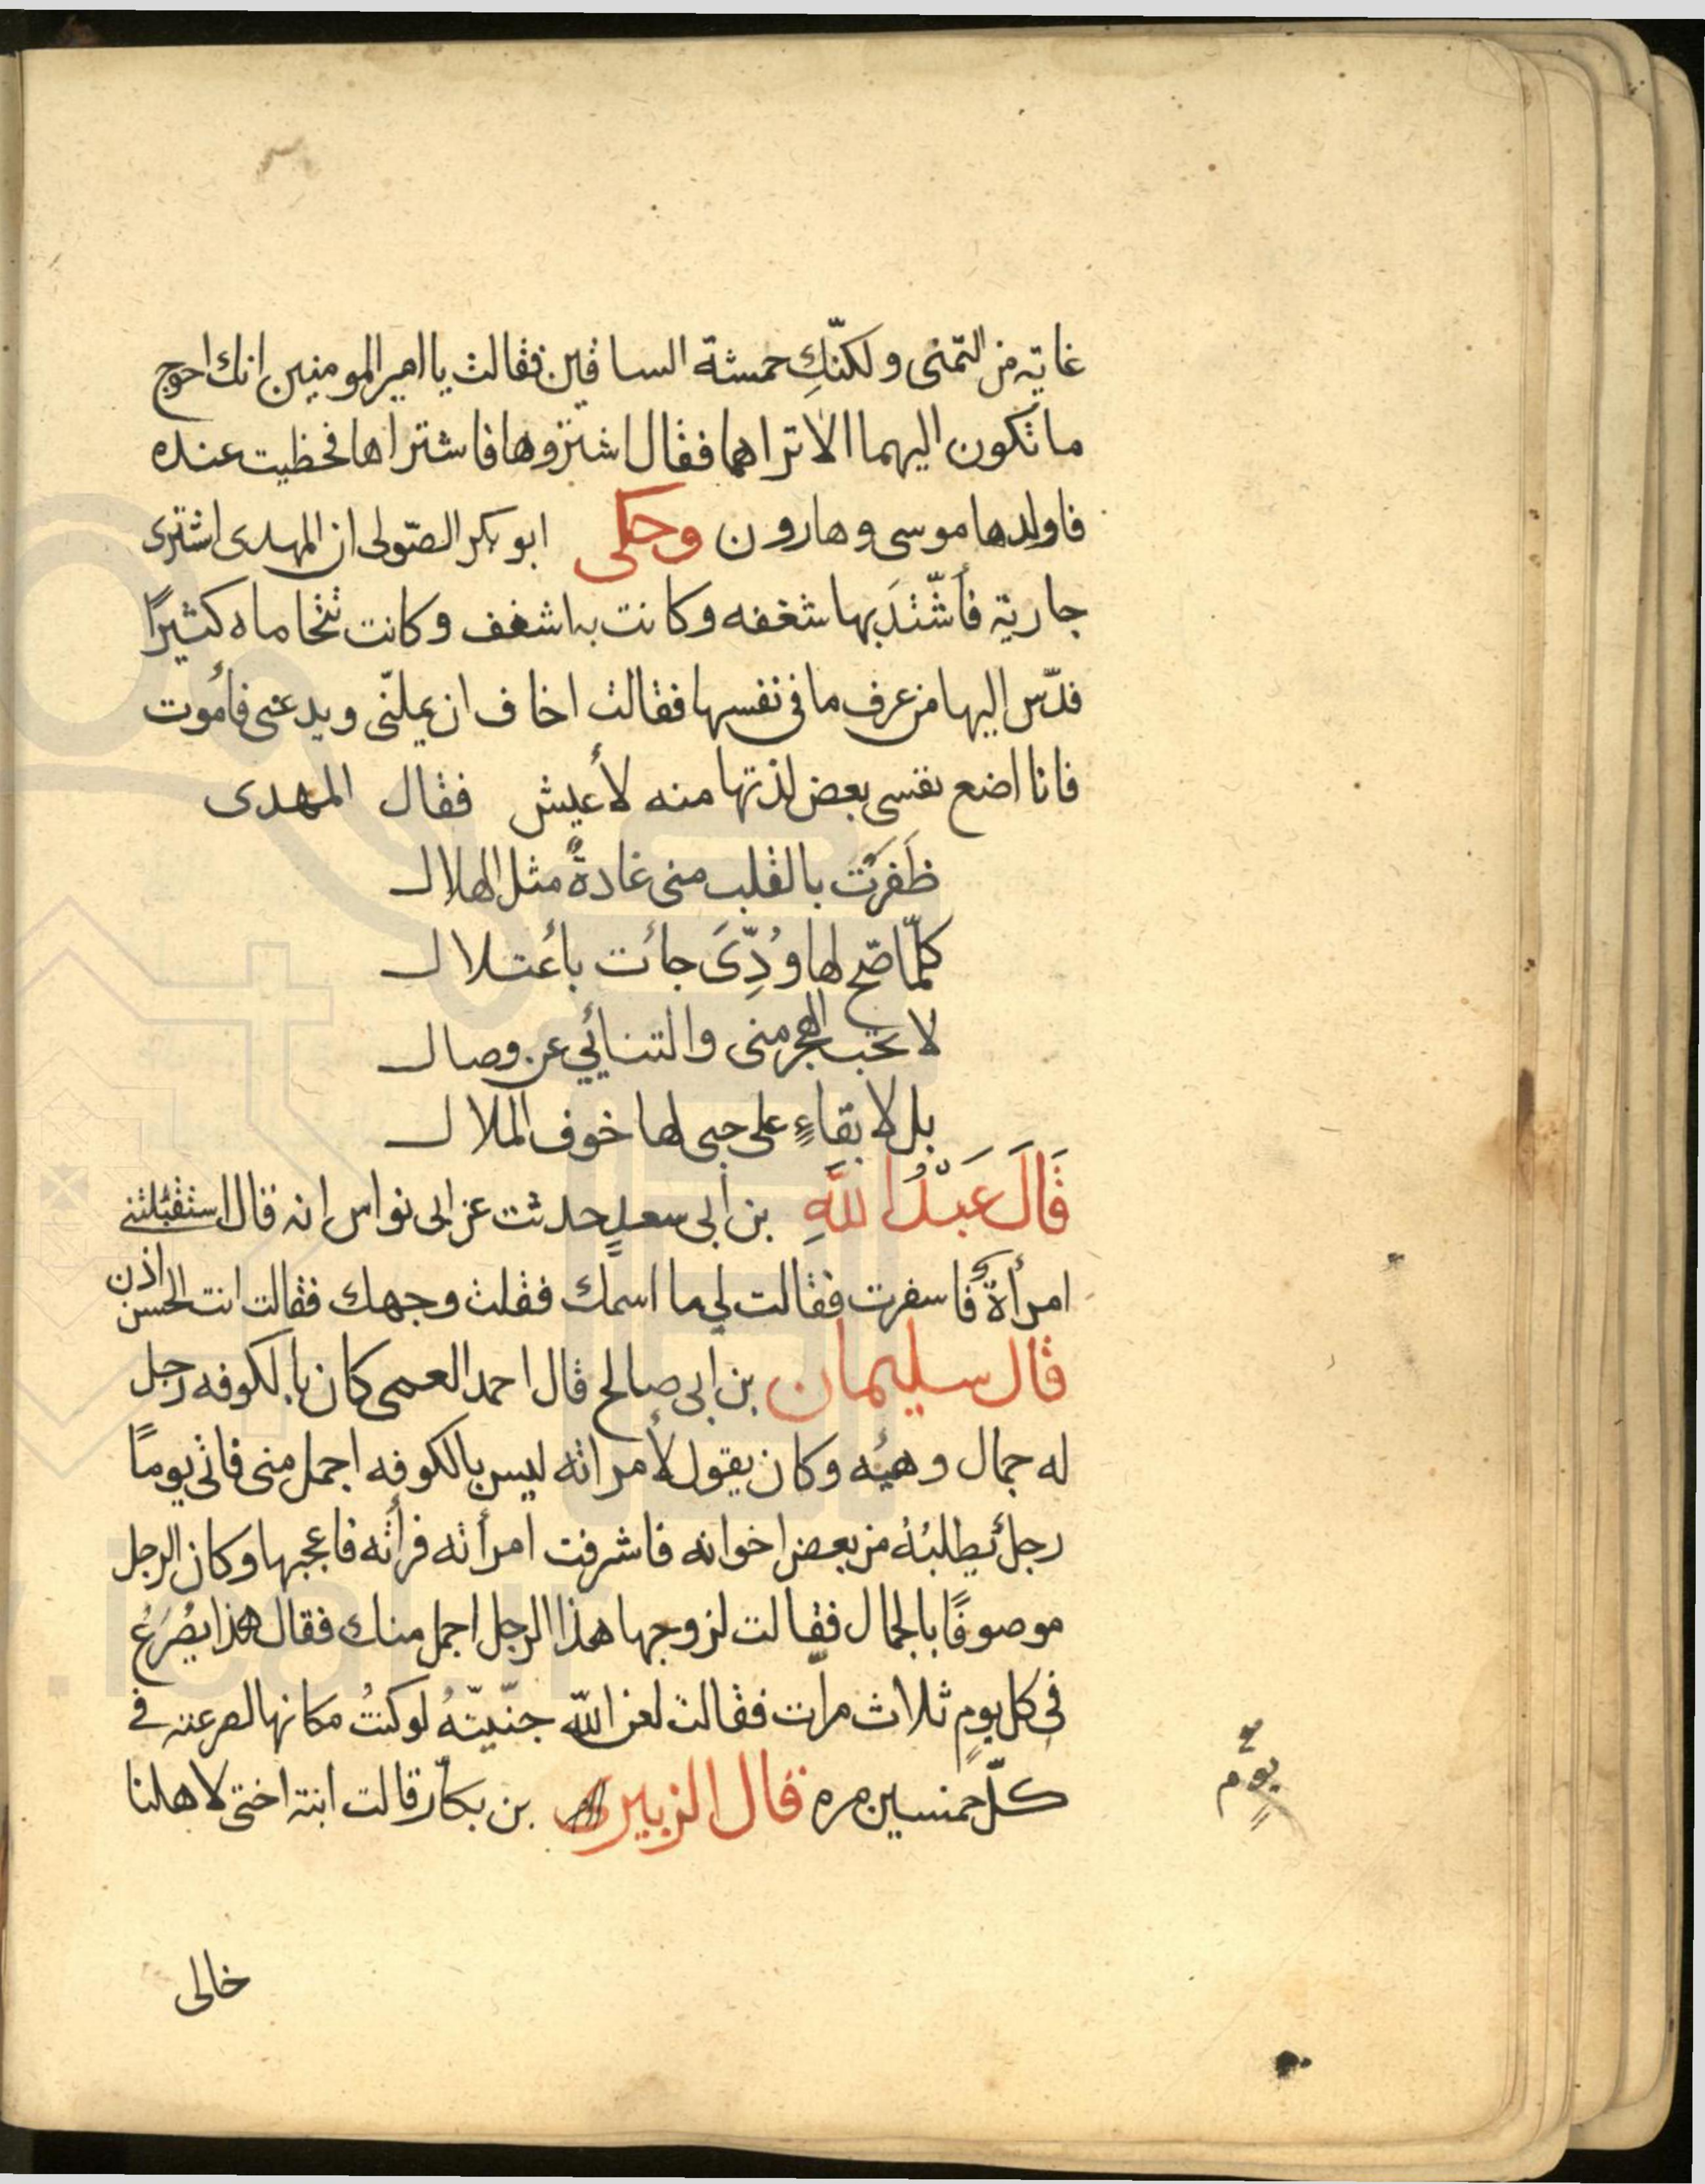 غاية من التمنى ولكنّكِ حمشة الساقين فقالت يا امير المومنين انك احوج
ما تكون اليهما الا تراهما فقال اشتروها فاشتراها فحظيت عنده
فاولدها موسى وهارون وحكى ابو بكر الصّولى ان المهدى اشترى
جارية فأشّتدَ بها شغفه وكانت به اشغف وكانت تتحاماه كثيرًا
فدّس اليها من عرف ما فى نفسها فقالت اخاف ان يملنّى ويدعنى فأموت
فانا امنع نفسى بعض لذتها منه لأعيش فقال المهدى
ظَفَرَتْ بالقلب منى غادةٌ مثل الهلال
كلّما صّح لها وُدِّىَ جائت بأعتلال
لا تحب الهجر منى والتنائي عن وصال
بل لا بقاءٍ على حبى لها خوف الملال
قَالَ عَبْدُ اللَّهِ بن أبى سعدٍ حدثت عن ابى نواس انه قال استقبلتنى
امرأةٌ فاسفرت فقالت لي ما اسمك فقلت وجهك فقالت انت الحسن اذن
قال سليمان بن ابى صالح قال احمد العمى كان بالكوفه رجل
له جمال وهيئه وكان يقول لأمراته ليس بالكوفه اجمل منى فاتى يومًا
رجل يطلبُهُ من بعض اخوانه فاشرفت امرأته فرأته فاعجبها وكان الرجل
موصوفًا بالجمال فقالت لزوجها هذا الرجل اجمل منك فقال هذا يصُرَعُ
فى كل يومٍ ثلاث مرّات فقالت لعن اللّه جنّيتّهُ لو كنتُ مكانها لصرعته فى
كلّ خمسين مره قال الزبير بن بكاّر قالت ابنة اختى لاهلنا
يومٍ
خالى